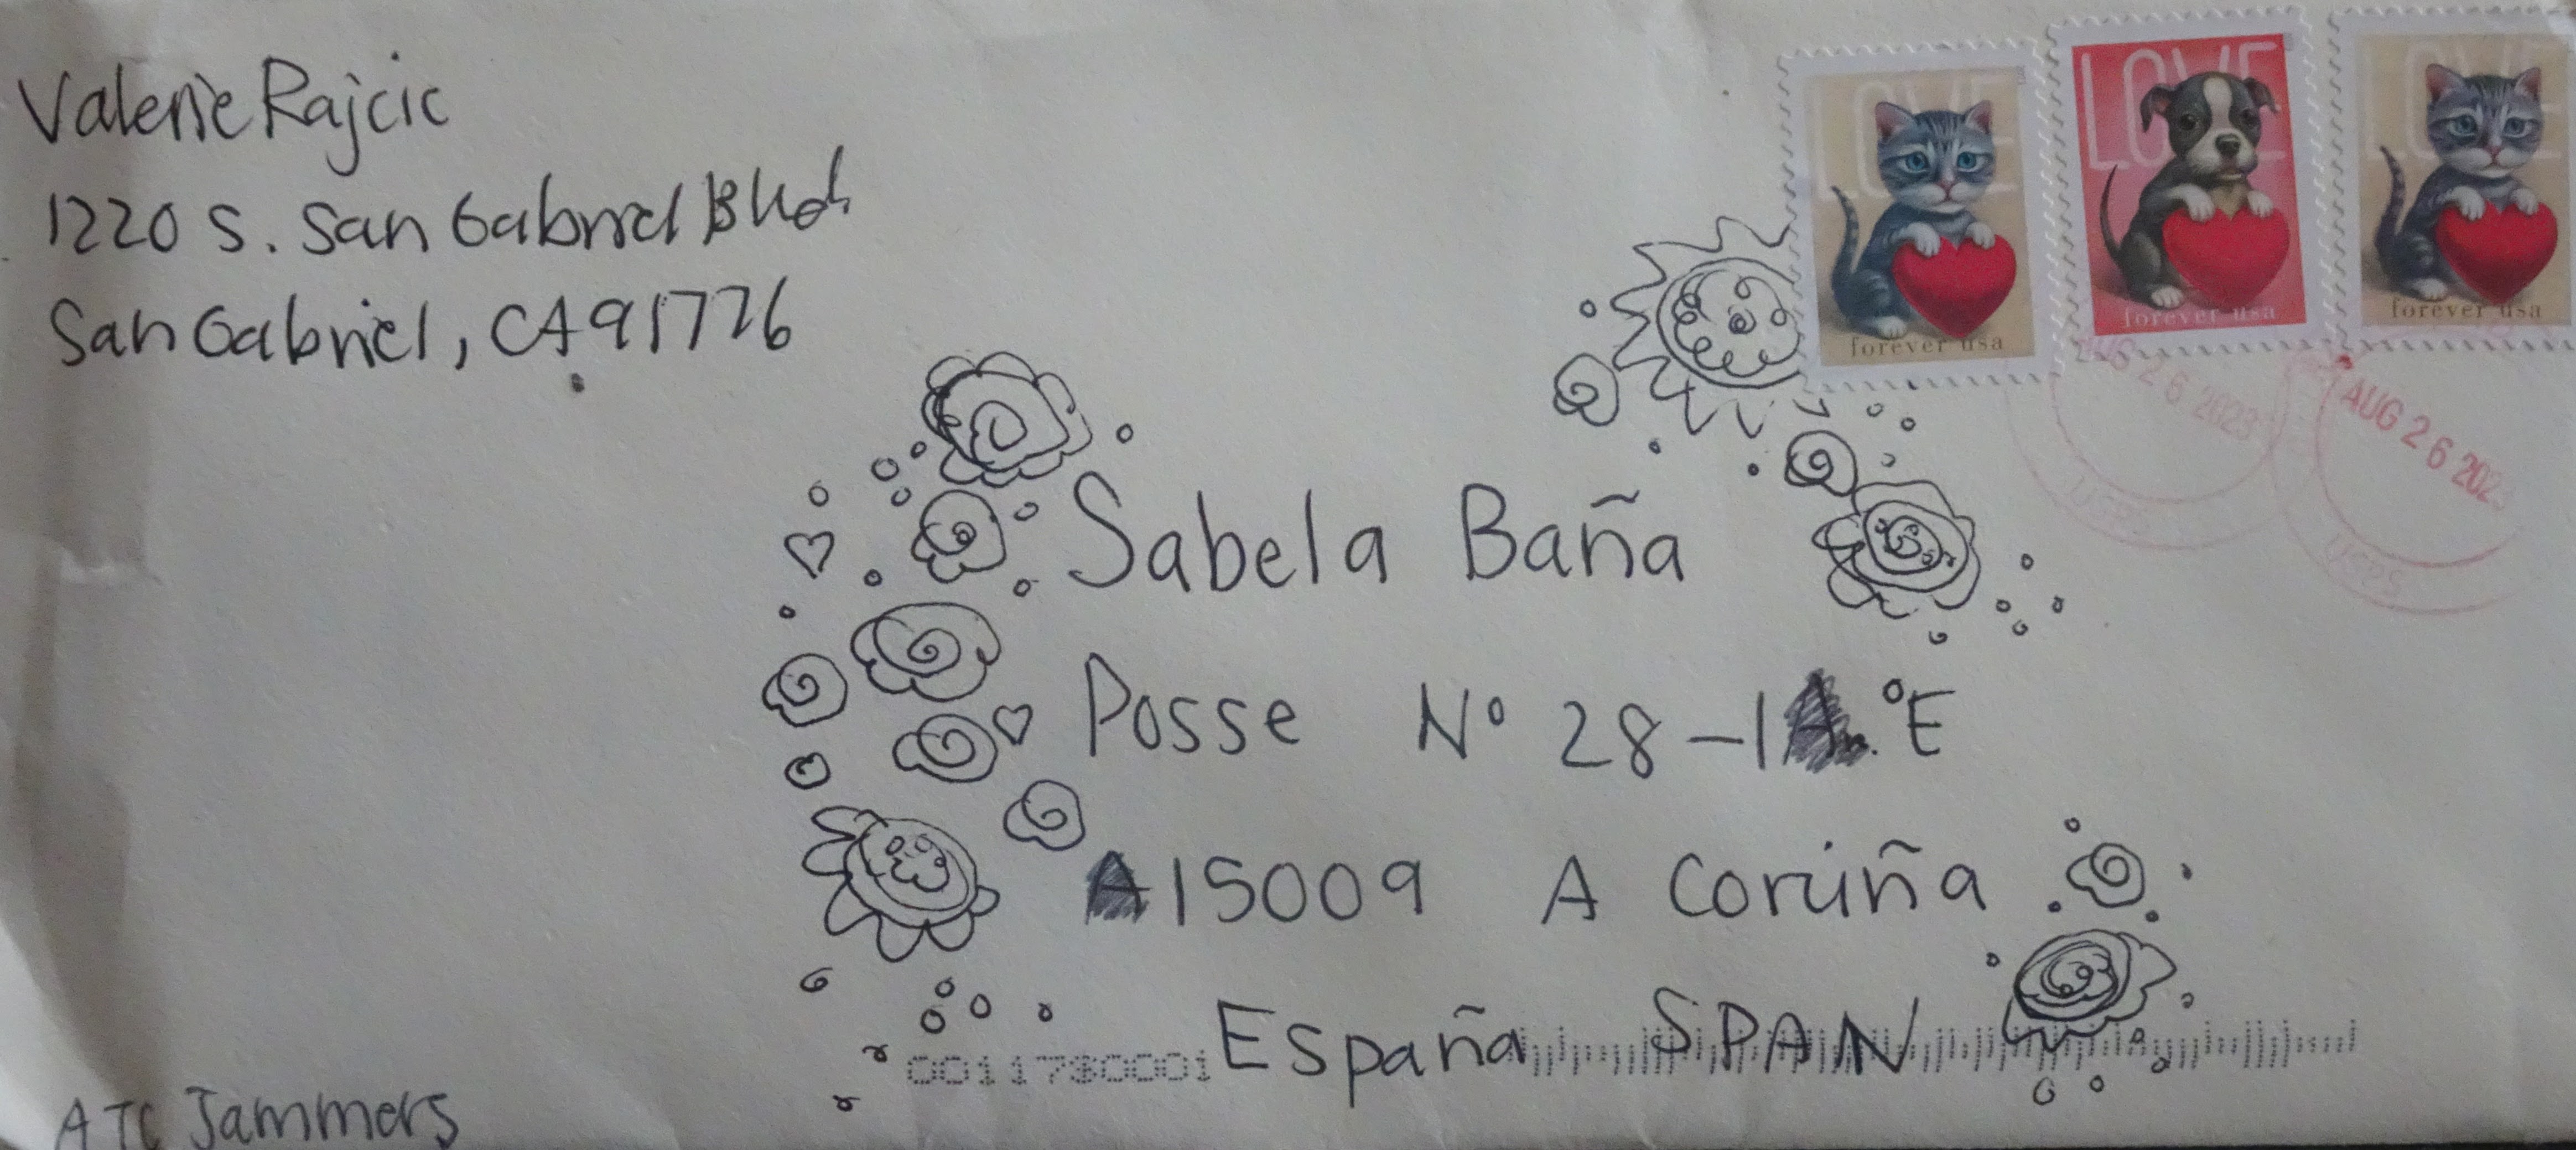 Valerie Rajcic
1220 S. San Gabriel Blvd
San Gabriel, CA 91776
LOVE
forever usa
LOVE
forever usa
LOVE
forever usa
AUG 26 2023
USPS
AUG 26 202
USPS
Sabela Baña
Posse Nº 28-1A.ºE
A15009 A Coruña
España SPAN
0011730001
ATC Jammers